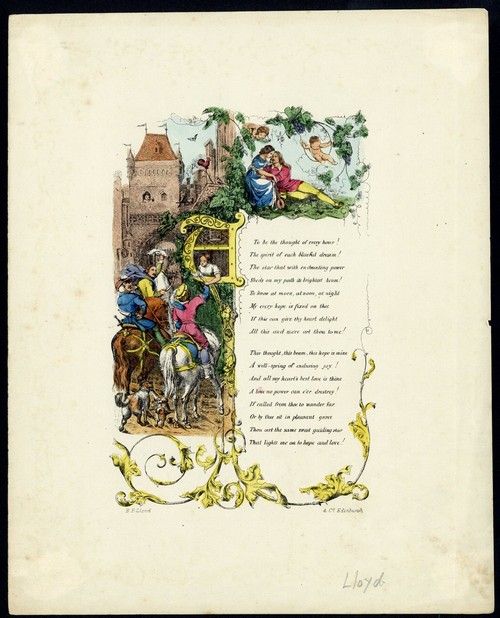 To be the thought of every hour!
The spirit of each blissful dream!
The star that with enchanting power
Sheds on my path its brightest beam!
To know at morn, at noon, at night
My every hope is fixed on thee
If this can give thy heart delight
All this and more art thou to me!
This thought, this beam, this hope is mine
A well-spring of enduring joy!
And all my heart's best love is thine
A love no power can e'er destroy!
If called from thee to wander far
Or by thee sit in pleasant grove
Thou art the same sweet guiding star
That lights me on to hope and love!
B. F. Lloyd & Co. Edinburgh
Lloyd